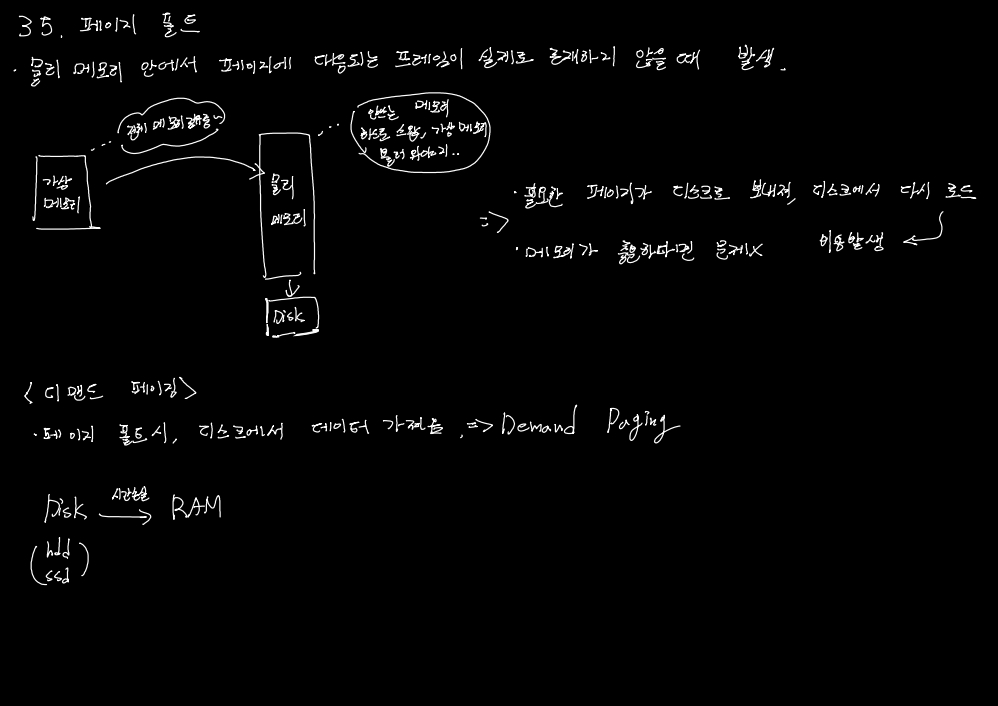 35. 페이지 폴트
· 물리 메모리 안에서 페이지에 대응되는 프레임이 실제로 존재하지 않을 때 발생.
메모리
가상
메모리
물리
메모리
Disk
안쓰는 메모리
스왑, 가상 메모리
⇒
· 필요한 페이지가 디스크로 보내져, 디스크에서 다시 로드
· 메모리가 충분하다면 문제X 이동발생
<디맨드 페이징>
· 페이지 폴트시, 디스크에서 데이터 가져옴. => Demand Paging
시간손실
Disk → RAM
(hdd
ssd)